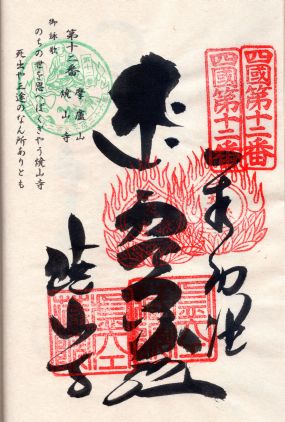 四國第十二番
四國第十二番
奉納経
虚空蔵
焼山寺
第十二番 摩盧山
焼山寺
御詠歌
のちの世を思へばくぎやう焼山寺
死出や三途のなん所ありとも